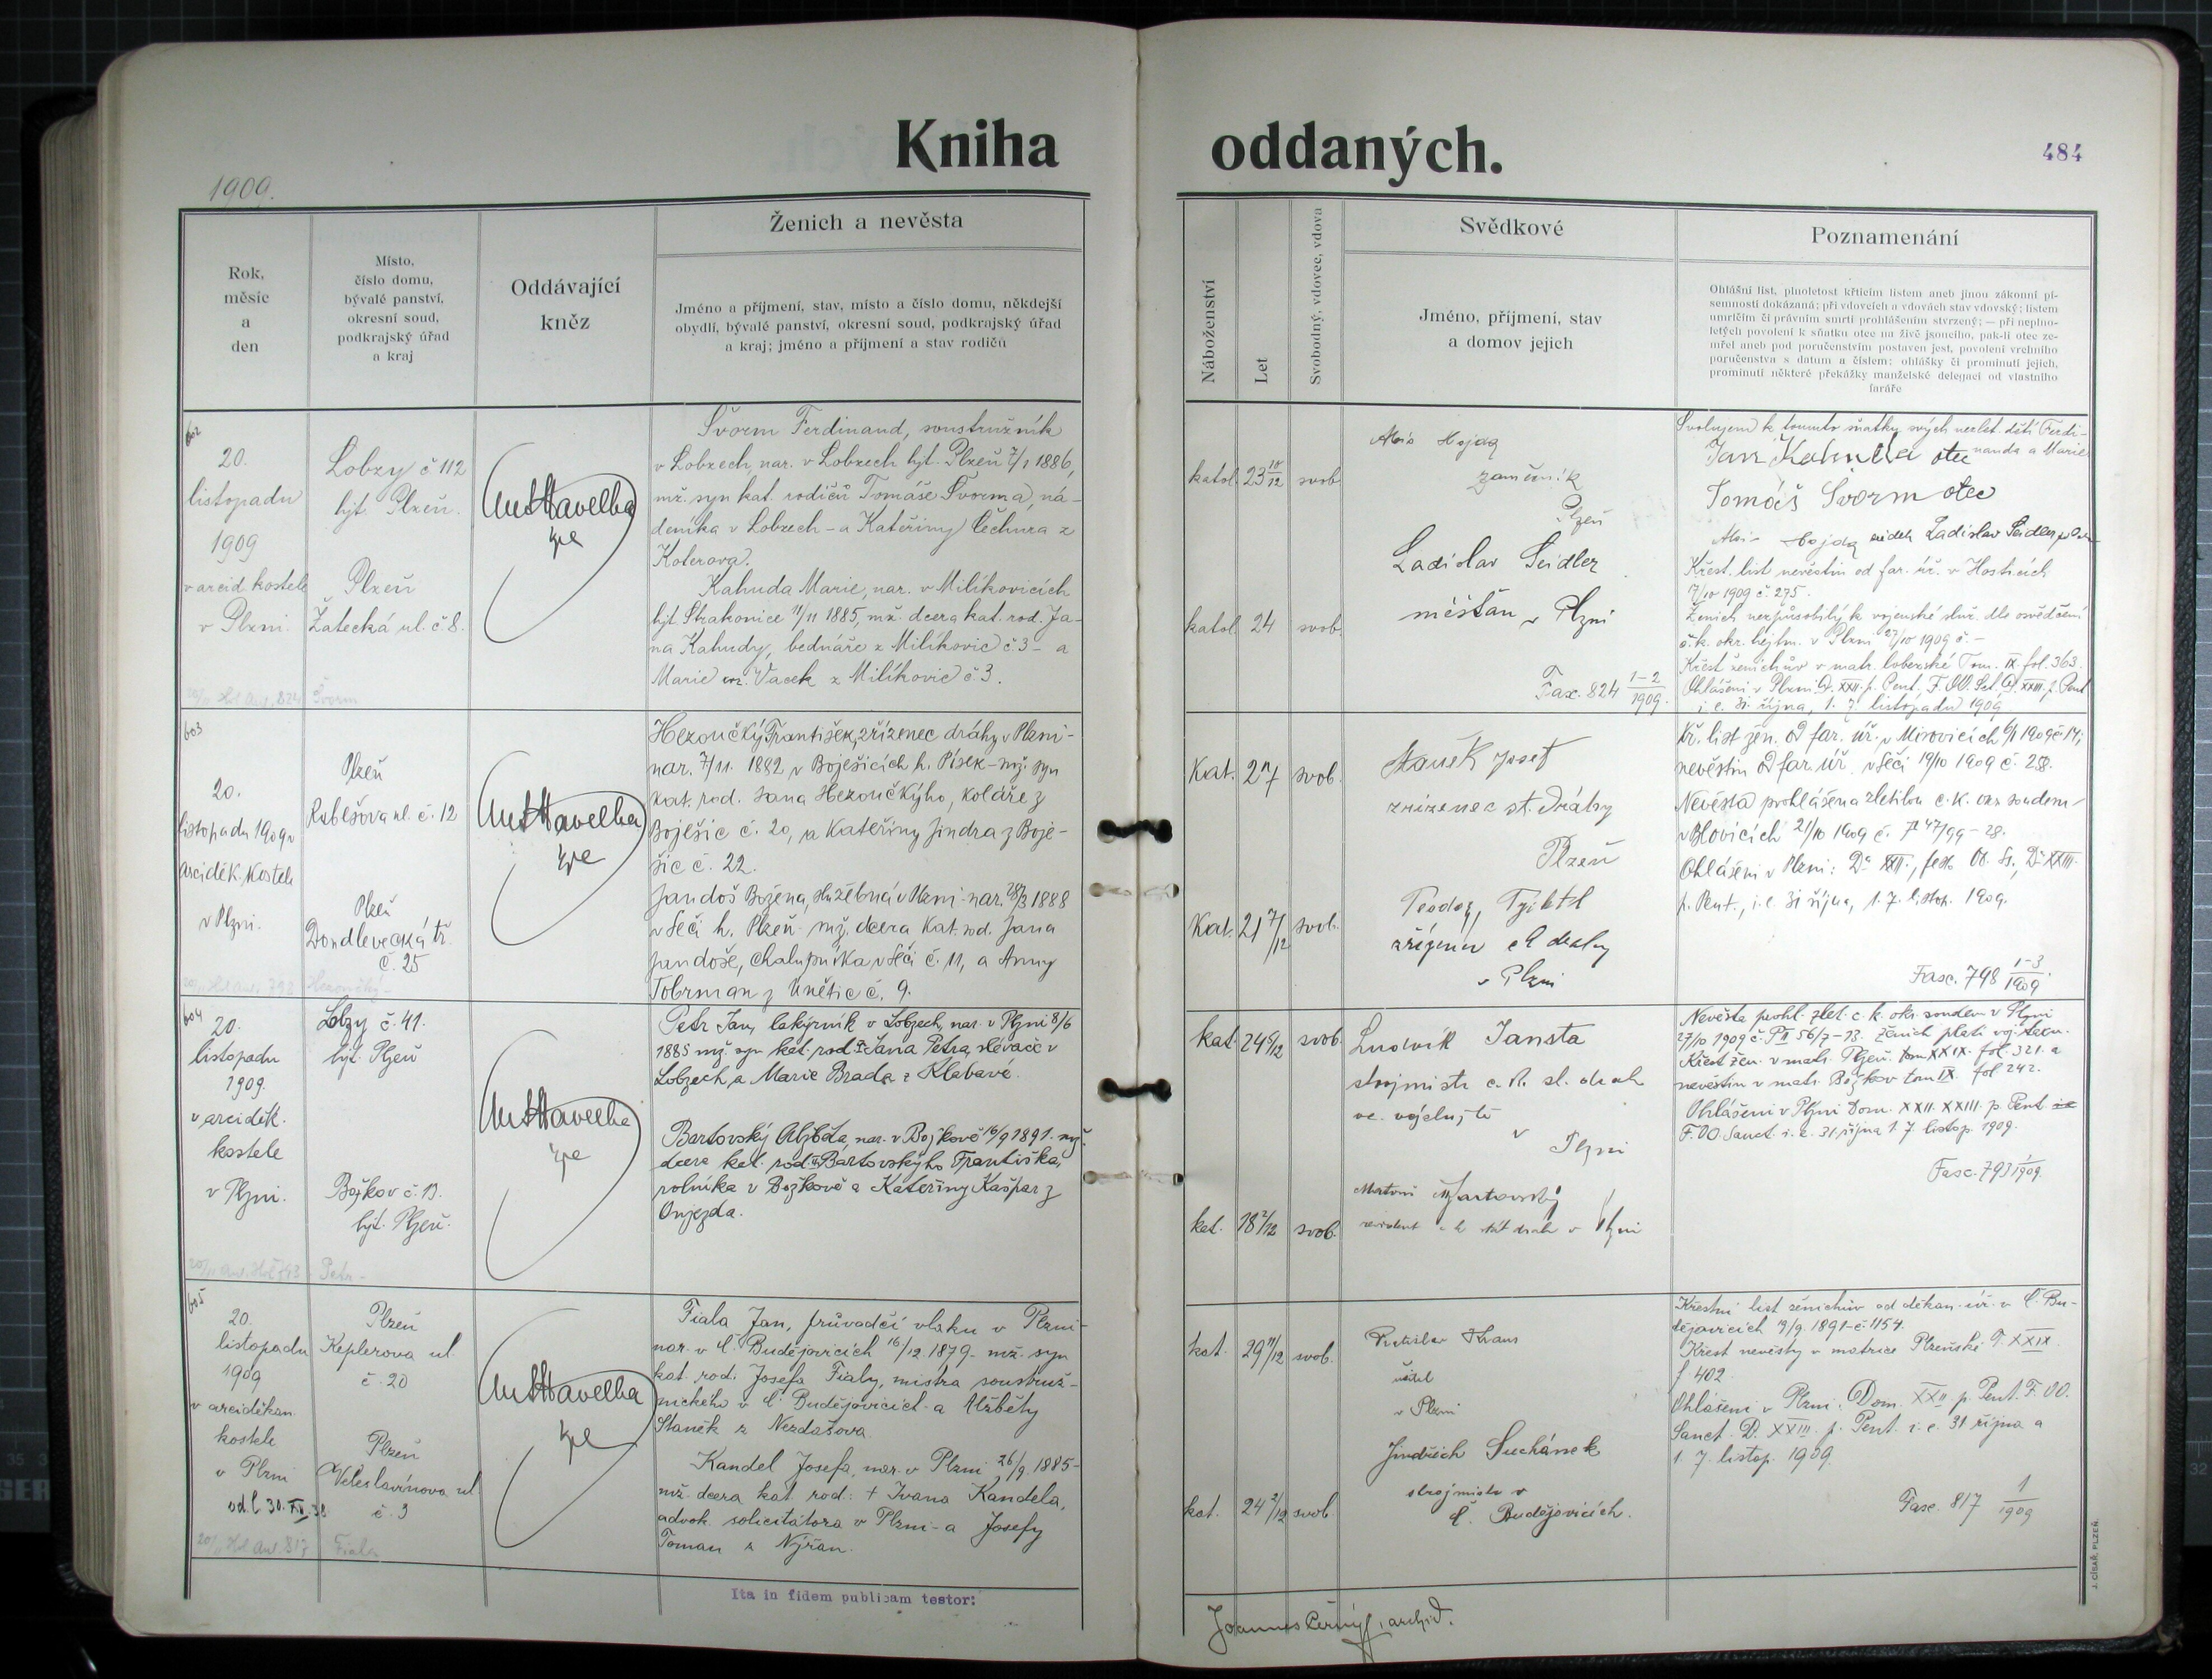 Kniha
oddaných.
484
1909.
Rok,
měsíc
a
den
Místo,
číslo domu,
bývalé panství,
okresní soud,
podkrajský úřad
a kraj
Oddávající
kněz
Ženich a nevěsta
Jméno a příjmení, stav, místo a číslo domu, někdejší
obydlí, bývalé panství, okresní soud, podkrajský úřad
a kraj; jméno a příjmení a stav rodičů
Náboženství
Let
Svobodný, vdovec, vdova
Svědkové
Jméno, příjmení, stav
a domov jejich
Poznamenání
Ohlášní list, plnoletost křticím listem aneb jinou zákonní pí-
semností dokázaná; při vdovcích a vdovách stav vdovský; listem
umrlčím či právním smrti prohlášením stvrzený; — při neplno-
letých povolení k sňatku otce na živě jsoucího, pak-li otec ze-
mřel aneb pod poručenstvím postaven jest, povolení vrchního
poručenstva s datum a číslem; ohlášky či prominutí jejich,
prominutí některé překážky manželské delegací od vlastního
faráře
602
20.
listopadu
1909
v arcid. kostele
v Plzni.
Lobzy č 112
hjt. Plzeň.
Plzeň
Žatecká ul. č 8.
Ant Havelka
Švorm Ferdinand, soustružník
v Lobzech, nar. v Lobzech hjt. Plzeň 7/1 1886,
mž. syn kat. rodičů Tomáše Švorma, ná-
deníka v Lobzech - a Kateřiny Čechura z
Koterova.
Kahuda Marie, nar. v Milíkovicích
hjt. Strakonice 11/11 1885, mž. dcera kat. rod. Ja-
na Kahudy, bednáře z Milíkovic č. 3 - a
Marie roz. Vacek z Milíkovic č 3.
katol. 23 10/12 svob.
katol. 24 svob.
Alois Hojda
zámečník
Plzeň
Ladislav Seidler
měšťan v Plzni
Fasc. 824 1-2/1909.
Svolujem k tomuto sňatku svých nezlet. dětí Ferdi-
nanda a Marie
Jan Kahuda otec
Tomáš Svorm otec
Ladislav Seidler
Křest. list nevěstin od far. úř. v Hosticích
17/10 1909 č. 275.
Ženich nezpůsobilý k vojenské služ. dle osvědčení
c. k. okr. hejtm. v Plzni 27/10 1909 č. -
Křest ženichův v matr. loberské Tom. IX. fol. 363.
Ohlášeni v Plzni D. XXII. p. Pent. F. OO. Sct. D. XXIII. p. Pent
i. e. 31. října, 1. 7. listopadu 1909.
603
20.
listopadu 1909 v
arciděk. kostele
v Plzni.
Plzeň
Rubešova ul. č. 12
Plzeň
Doudlevecká tř.
č. 25
Ant Havelka
Hezoučký František, zřízenec dráhy v Plzni -
nar. 7/11. 1882 v Boješicích h. Písek - mž. syn
kat. rod. Jana Hezoučkýho, koláře z
Boješic č. 20, a Kateřiny Jindra z Boje-
šic č. 22.
Jandoš Božena, služebná v Plzni - nar. 28/3 1888
v Seči h. Plzeň - mž. dcera kat. rod. Jana
Jandoše, chalupníka v Seči č. 11, a Anny
Tobrman z Únětic č. 9.
Kat. 27 svob.
Kat. 21 7/12 svob.
Staněk Josef
zřízenec st. dráhy
Plzeň
v Plzni
Kř. list žen. od far. úř. v Mirovicích 6/1 1909 č 14;
nevěstin od far. úř. v Seči 19/10 1909 č. 258.
Nevěsta prohlášena zletilou c. k. okr. soudem
v Blovicích 21/10 1909 č. P 47/99 - 28.
Ohlášeni v Plzni: D. XXII., fest. OO. Ss., D. XXIII.
p. Pent., i. e. 31 října, 1. 7. listop. 1909.
Fasc. 798 1-3/1909.
604
20.
listopadu
1909.
v arciděk.
kostele
v Plzni.
Lobzy č. 41.
hjt. Plzeň
Božkov č. 13.
hjt. Plzeň.
Ant Havelka
Petr Jan, lakýrník v Lobzech, nar. v Plzni 8/6
1885 mž. syn kat. rod. Jana Petra, slévače v
Lobzech, a Marie Brada z Klabavě.
Bartovský Alžběta, nar. v Božkově 16/9 1891. mž.
dcera kat. rod. Bartovskýho Františka,
rolníka v Božkově a Kateřiny Kašpar z
Oujezda.
kat. 24 5/12 svob.
kat. 18 2/12 svob.
Ludvík Jansta
strojmistr c. k. st. drah
v
Plzni
Bartovský
Nevěsta prohl. zlet. c. k. okr. soudem v Plzni
27/10 1909 č. P II 56/7-13. Ženich platí voj. taxu.
Křest žen. v matr. Plzeň. tom XXIX. fol. 321. a
nevěstin v matr. Božkov tom IX. fol 242.
Ohlášeni v Plzni Dom. XXII. XXIII. p. Pent. ie
F. OO. Sanct. i. e. 31 října 1. 7. listop. 1909.
Fasc. 793 1/1909.
605
20.
listopadu
1909
v arciděkan.
kostele
v Plzni
Plzeň
Keplerova ul.
č. 20
Plzeň
Veleslavínova ul.
č. 3
Ant Havelka
Fiala Jan, průvodčí vlaku v Plzni -
nar. v Č. Budějovicích 16/12 1879 - mž. syn
kat. rod. Josefa Fialy, mistra soustruž-
nického v Č. Budějovicích - a Alžběty
Staněk z Nezdašova.
Kandel Josefa, nar. v Plzni 26/9. 1885 -
mž. dcera kat. rod. + Ivana Kandela,
advok. solicitátora v Plzni - a Josefy
Toman z Nýřan.
kat. 29 11/12 svob.
kat. 24 2/12 svob.
učitel
v Plzni
Jindřich Suchánek
strojmistr v
Č. Budějovicích.
Křestní list ženichův od děkan. úř. v Č. Bu-
dějovicích 19/9. 1891 - č. 1154.
Křest nevěsty v matrice Plzeňské T. XXIX.
f 402.
Ohlášeni v Plzni: Dom. XXII p. Pent. F. OO.
Sanct. D. XXIII. p. Pent. i. e. 31 října a
1. 7. listop. 1909.
Fasc. 817 1/1909
Ita in fidem publicam testor:
Joannes Černý, archid.
J. CÍSAŘ, PLZEŇ.